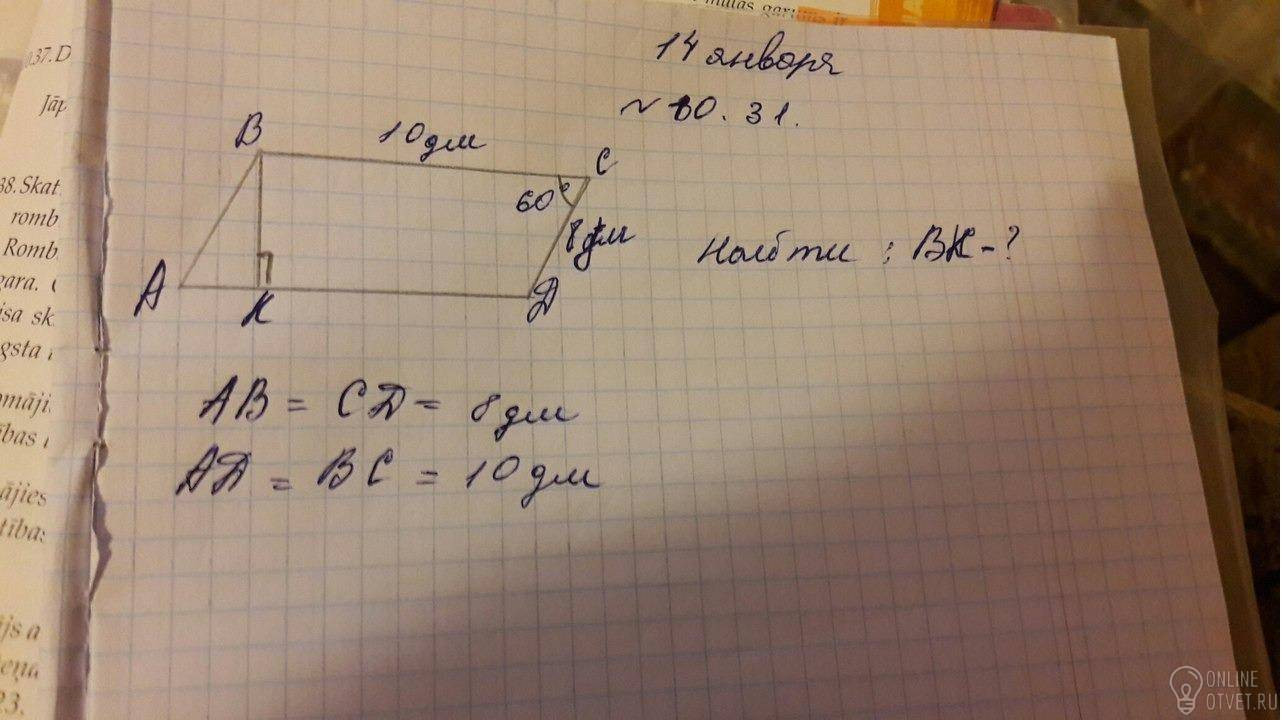 mulas garums ir
0.37. D
Jāp
38. Skat.
romb
Romb
gara.
isa sk
gsta
omāji
ības
ājies
tības
ājs a
eņa
23.
14 января
№ 10. 31.
B
10 дм
C
60°
8 дм
Найти : BK - ?
A
K
D
AB = CD = 8 дм
AD = BC = 10 дм
ONLINE
OTVET.RU